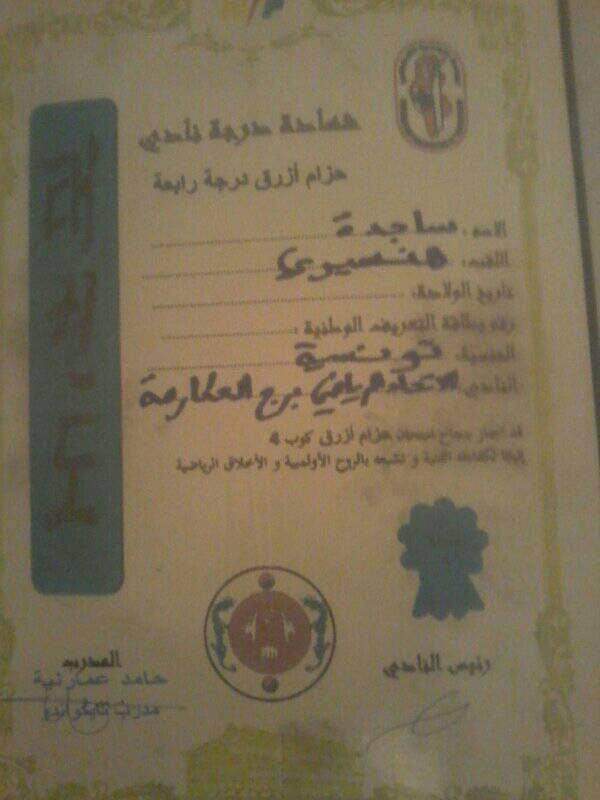 شهادة درجة نادي
حزام أزرق درجة رابعة
الاسم: ساجدة
اللقب:
تاريخ الولادة:
رقم بطاقة التعريف الوطنية:
الجنسية: تونسية
النادي الاتحاد الرياضي برج العطارمة
قد اجتاز بنجاح امتحان حزام أزرق كوب 4
و تشبعه بالروح الأولمبية و الأخلاق الرياضية
رئيس النادي
المدرب
حامد عمارنية
مدرب تايكواندو